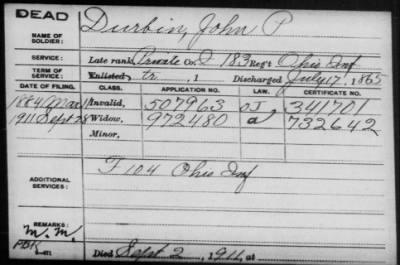 DEAD
NAME OF SOLDIER: Durbin, John P
SERVICE: Late rank, Private Co. I 183 Reg't Ohio Inf
TERM OF SERVICE: Enlisted tr. , 1 Discharged July 17, 1865
DATE OF FILING. CLASS. APPLICATION NO. LAW. CERTIFICATE NO.
1884 Mar Invalid, 507963 341701
1911 Sept 28 Widow, 972480 a 732642
Minor,
ADDITIONAL SERVICES: F 104 Ohio Inf
REMARKS:
M. M.
Died Sept 2, 1911, at